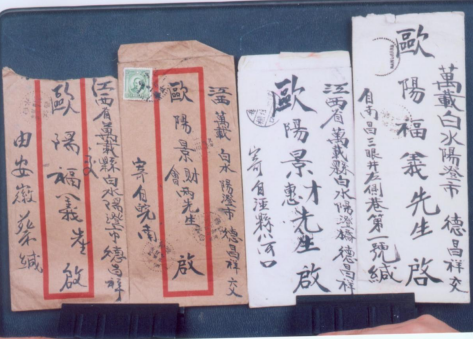 萬載白水陽澄市 德昌祥交
歐陽福義先生啓
自南昌三眼井左側巷第一號緘
江西省萬載縣白水陽澄市 德昌祥
歐陽景才惠先生啟
寄自涇縣
江西 萬載 白水 陽澄市 德昌祥
歐陽景財兩先生 啟
寄自皖南
江西省萬載縣白水陽澄市德昌祥
歐陽福義先生啟
由安徽